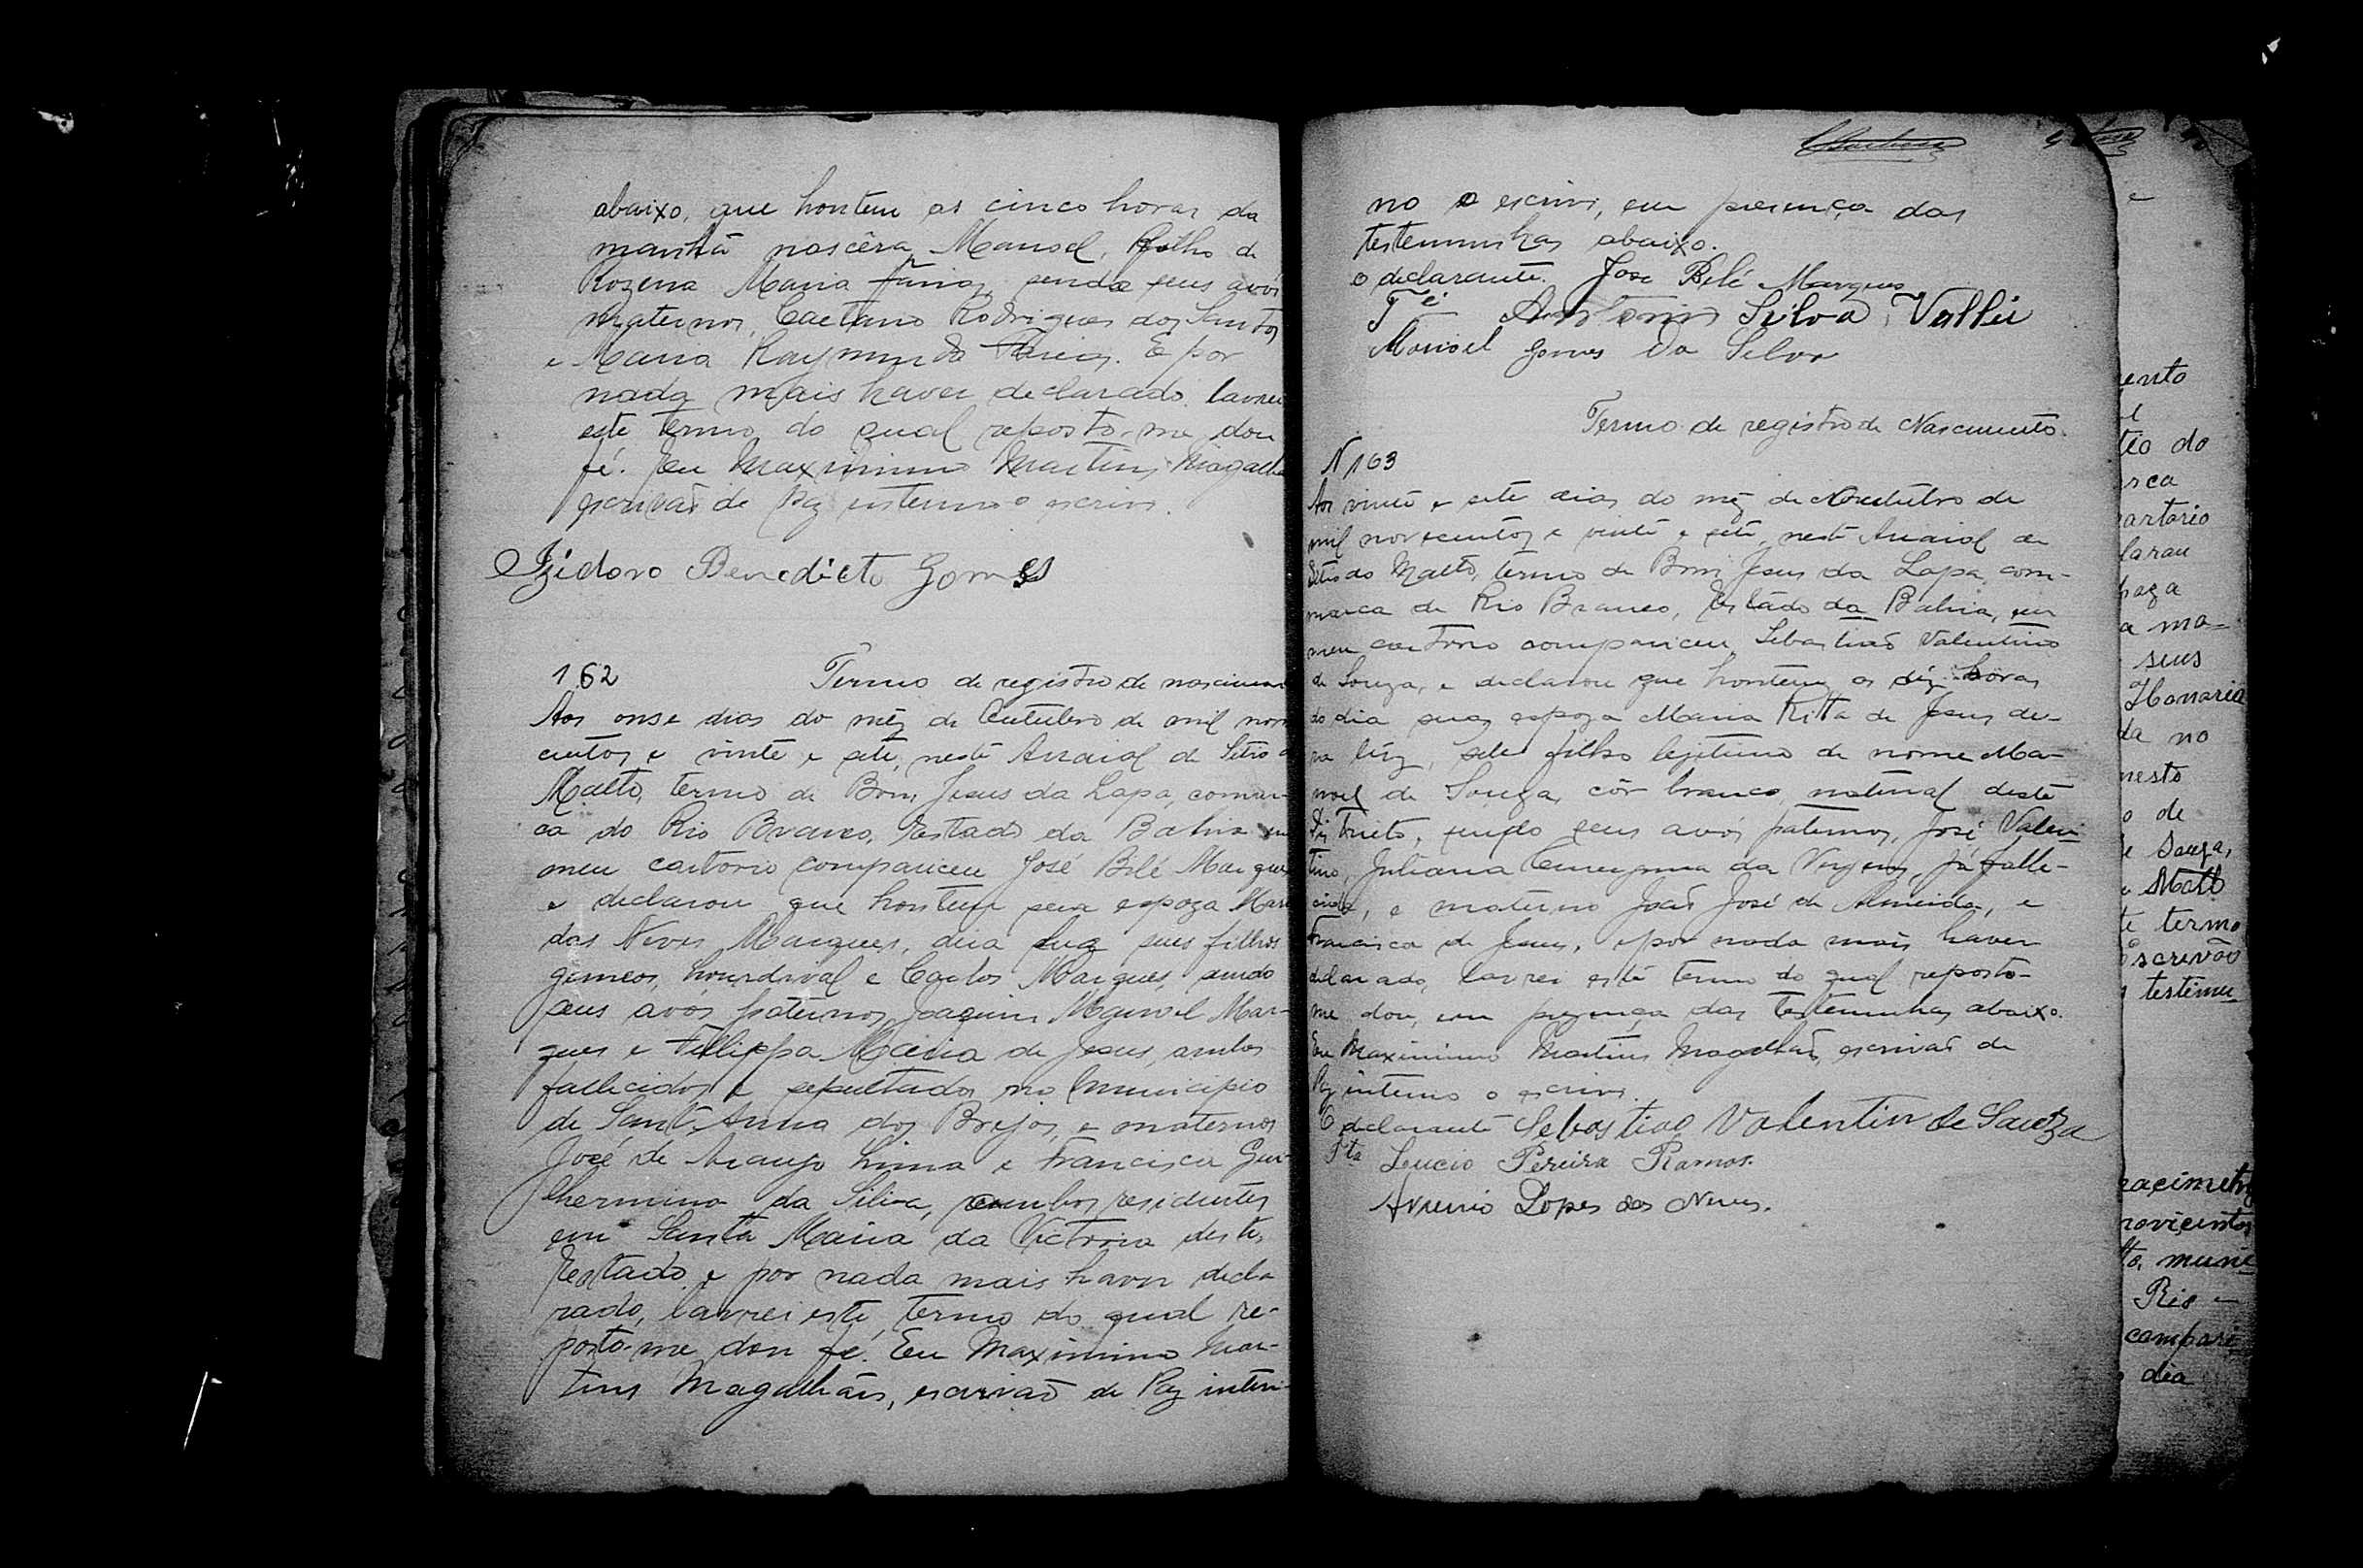 abaixo, que hontem as cinco horas da
manhã nascêra Manoel, filho de
Rozena Maria sendo seus avós
maternos, Caetano Rodrigues dos Santos
e Maria Raymunda E por
nada mais haver declarado, lavrei
este termo do qual reposto-me dou
fé. Eu Maximino Martins Magalhã
escrivão de Paz interino o escrivi.
Izidoro Benedicto Gomes
162 Termo de registro de nascimen
Aos onse dias do mêz de Outubro de mil nove
centos e vinte e sete, neste Arraial de Sitio d
Matto, termo de Bom Jesus da Lapa, comar-
ca do Rio Branco, Estado da Bahia em
meu cartorio compareceu José Bilé Marques
e declarou que hontem sua espoza Mari
das Neves Marques, dera luz seus filhos
gemeos, Lourdival e Carlos Marques, sendo
seus avos paternos, Joaquim Manoel Mar-
ques e Fellippa Maria de Jesus, ambos
fallicidos e sepultados no Municipio
de Sant'Anna dos Brejos, e maternos
José de Araujo Lima e Francisca Gui-
lhermina da Silva, ambos residentes
em Santa Maria da Victoria deste,
Estado, e por nada mais haver decla
rado, lavrei este, termo do qual re-
posto-me dou fé. Eu Maximino Mar-
tins Magalhães, escrivão de Paz interi-
no o escrivi, em presença das
testemunhas abaixo.
o declarante. Jose Bilé Marques
Antonio Silva Valle
Manoel Gomes da Silva
Termo de registro de Nascimento.
N 163
Aos vinte e sete dias do mêz de Outubro de
mil novecentos e vinte e sete, neste Arraial de
Sitio do Matto, termo de Bom Jesus da Lapa, com-
marca de Rio Branco, Estado da Bahia, em
meu cartorio compareceu, Sebastião Valentino
de Souza, e declarou que hontem as dez horas
do dia sua espoza Maria Ritta de Jesus de-
ra lúz, seu filho legitimo de nome Ma-
noel de Souza, côr branco, natural deste
Districto, sendo seus avós paternos, José Valen-
tino, Juliana da Virgens, já falle-
cida, e materno João José de Almeida, e
Francisca de Jesus, e por nada mais haver
declarado, lavrei este termo do qual reposto-
me dou, em presença das testemunhas abaixo.
Eu Maximino Martins Magalhães, escrivão de
Paz interino o escrivi.
O declarante Sebastião Valentin de Souza
Tta Lucio Pereira Ramos.
Lopes das Neves.
ento
tio do
rca
artorio
laran
a ma-
seus
Honaria
da no
nesto
o de
e Souza,
e Matto
te termo
Escrivão
testimu
nacimeto
novicentos
to, muni
Rio
compare
dia